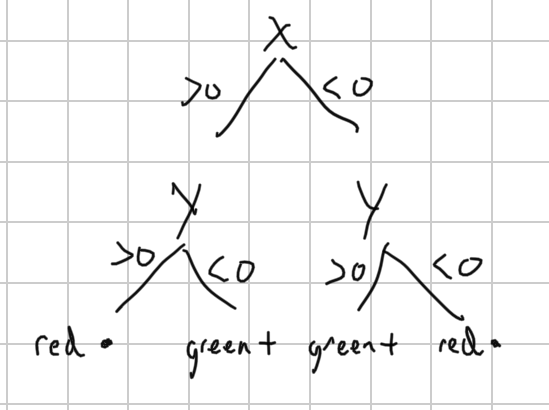 X
>0 <0
Y Y
>0 <0 >0 <0
red • green + green + red •